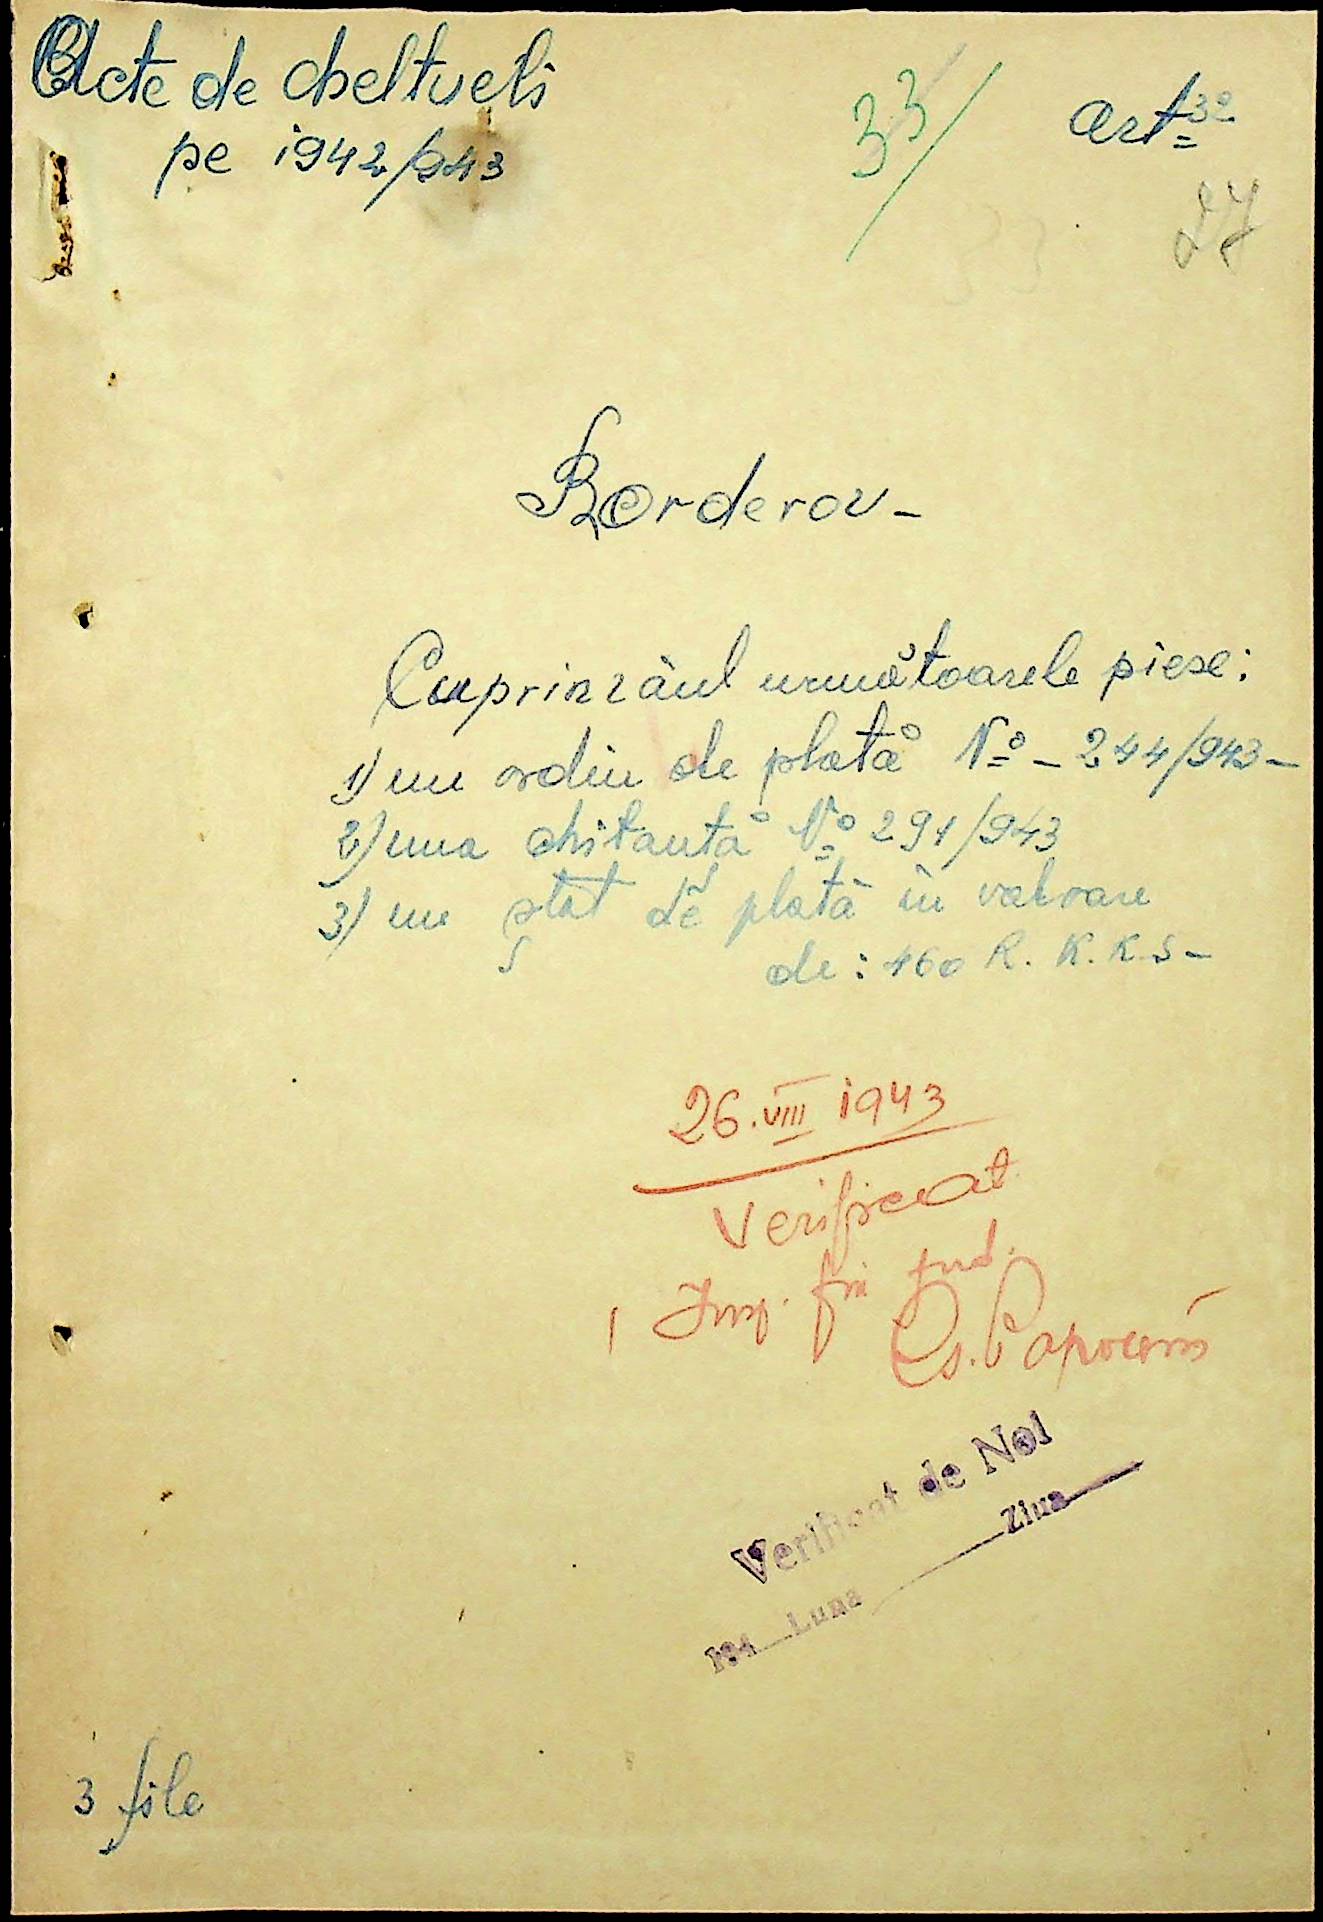 Acte de cheltueli
pe 1942/943
33/
art 30
27
Borderou-
Cuprinzând următoarele piese:
1) un ordin de plată No - 244/943-
2) una chitantă No 291/943
3) un stat de plată în valoare
de: 460 R. K. K. S-
26.VIII 1943
Verificat
Insp. fin jud.
Verificat de Noi
194 Luna Ziua
3 file